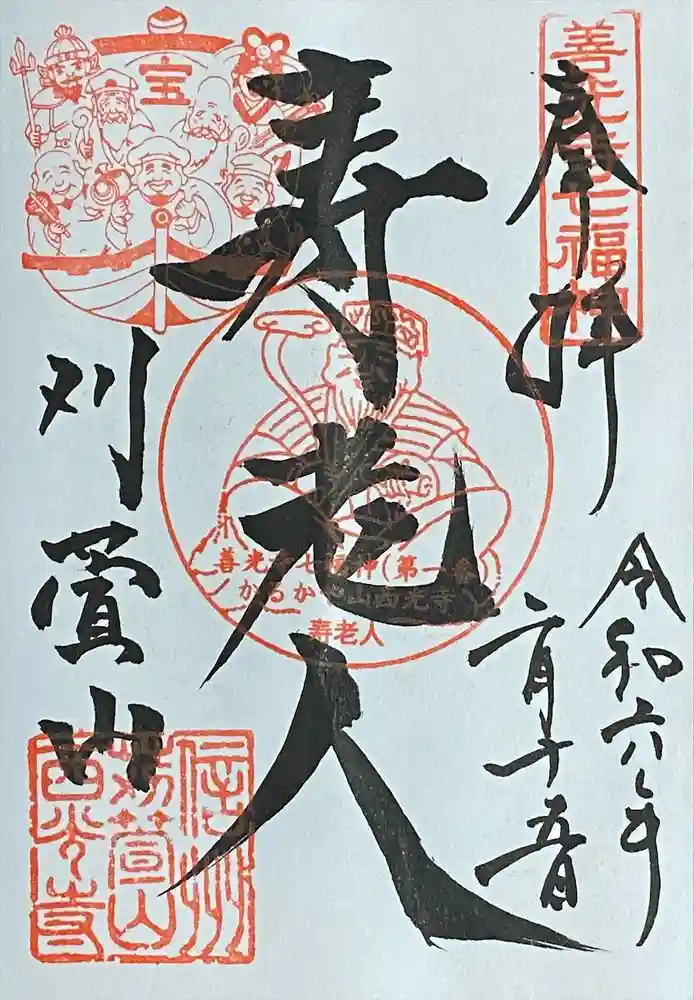 奉拝
善光寺七福神
令和六年
二月十五日
寿老人
善光寺七福神(第一番)
かるかや山西光寺
寿老人
宝
刈萱山
信州
苅萱山
西光寺